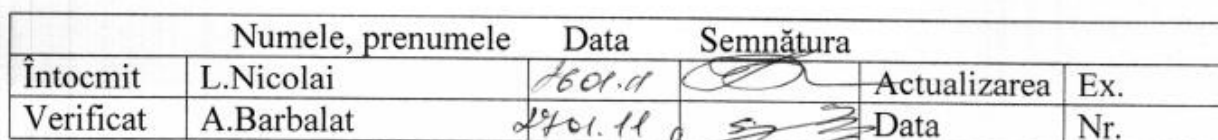 Numele, prenumele Data Semnătura
Întocmit L.Nicolai Actualizarea Ex.
Verificat A.Barbalat 2701.11 Data Nr.